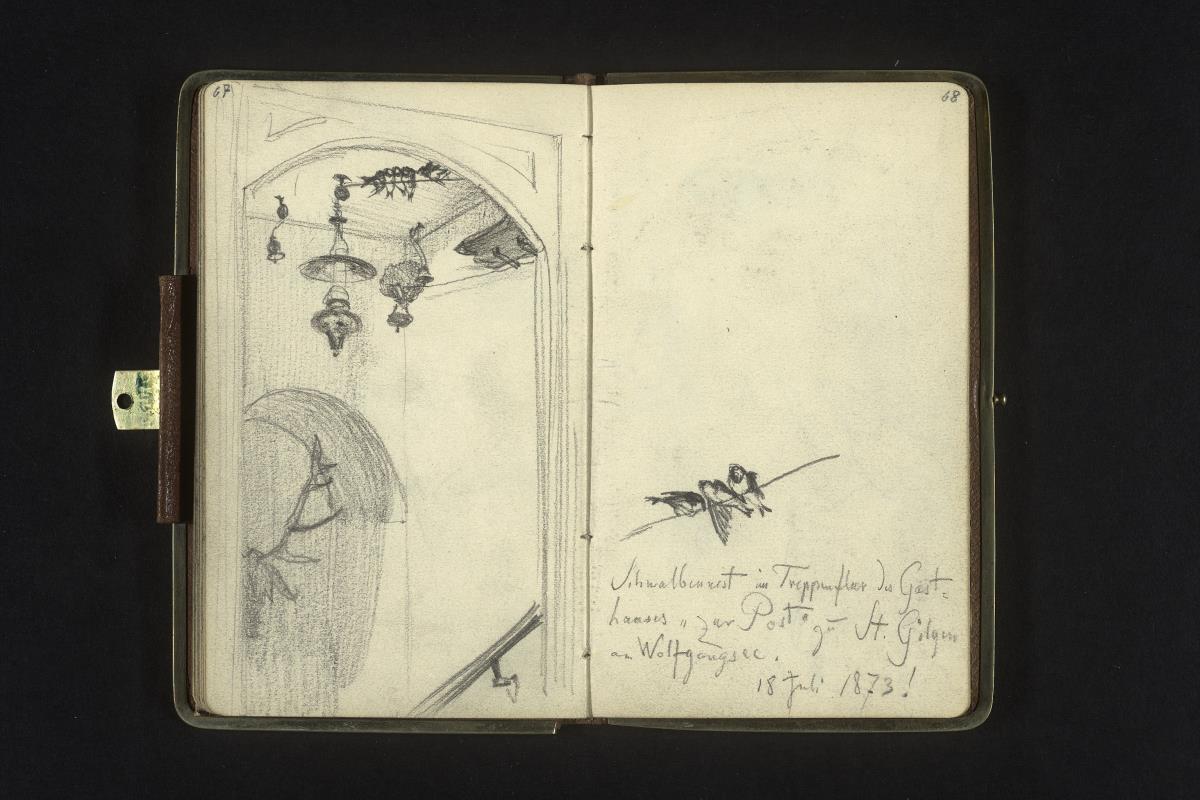 67
68
Schwalbennest im Treppenflur des Gast=
hauses „zur Post" zu St. Gilgen
am Wolfgangsee.
18 Juli 1873!